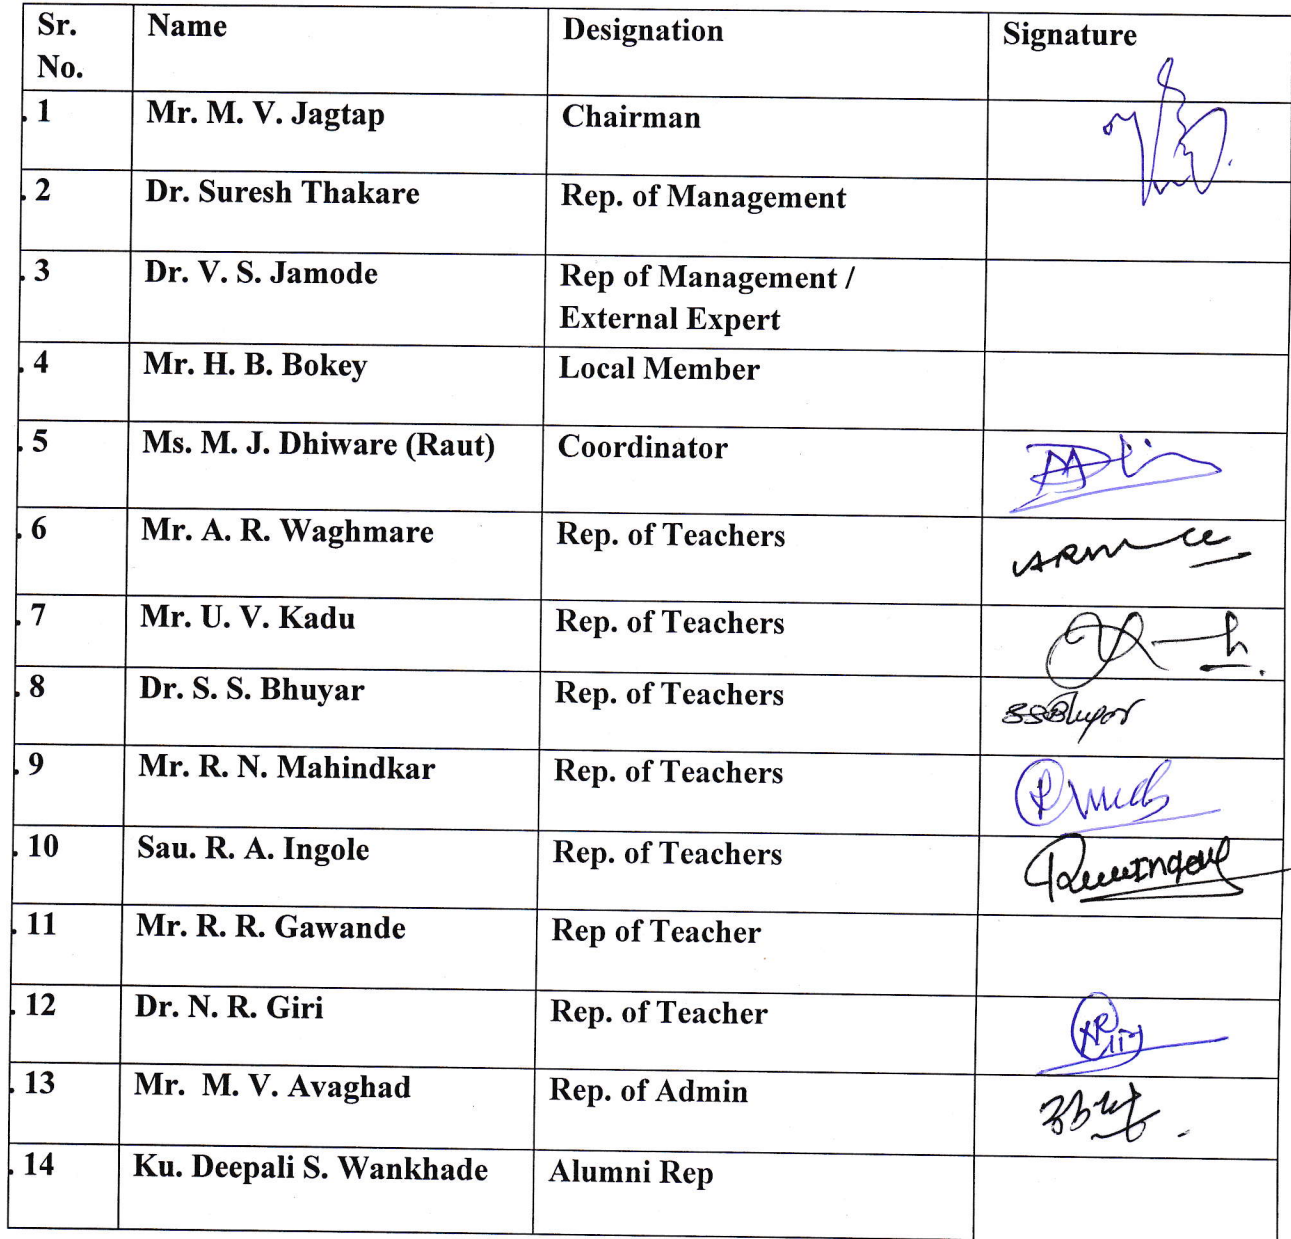 Sr. No. Name Designation Signature
. 1 Mr. M. V. Jagtap Chairman
. 2 Dr. Suresh Thakare Rep. of Management
. 3 Dr. V. S. Jamode Rep of Management / External Expert
. 4 Mr. H. B. Bokey Local Member
. 5 Ms. M. J. Dhiware (Raut) Coordinator
. 6 Mr. A. R. Waghmare Rep. of Teachers
. 7 Mr. U. V. Kadu Rep. of Teachers
. 8 Dr. S. S. Bhuyar Rep. of Teachers SSBhuyar
. 9 Mr. R. N. Mahindkar Rep. of Teachers
. 10 Sau. R. A. Ingole Rep. of Teachers
. 11 Mr. R. R. Gawande Rep of Teacher
. 12 Dr. N. R. Giri Rep. of Teacher
. 13 Mr. M. V. Avaghad Rep. of Admin
. 14 Ku. Deepali S. Wankhade Alumni Rep